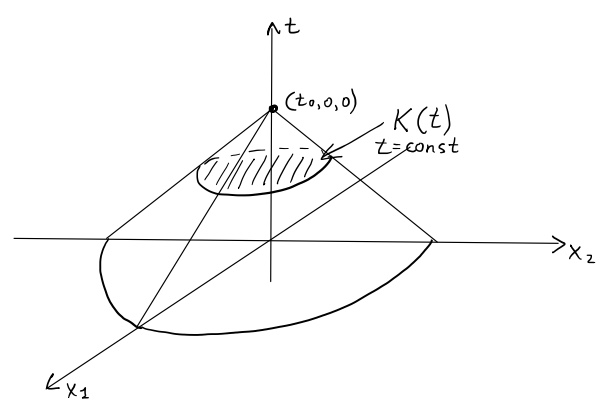 t
(t₀,0,0)
K(t)
t=const
x₂
x₁